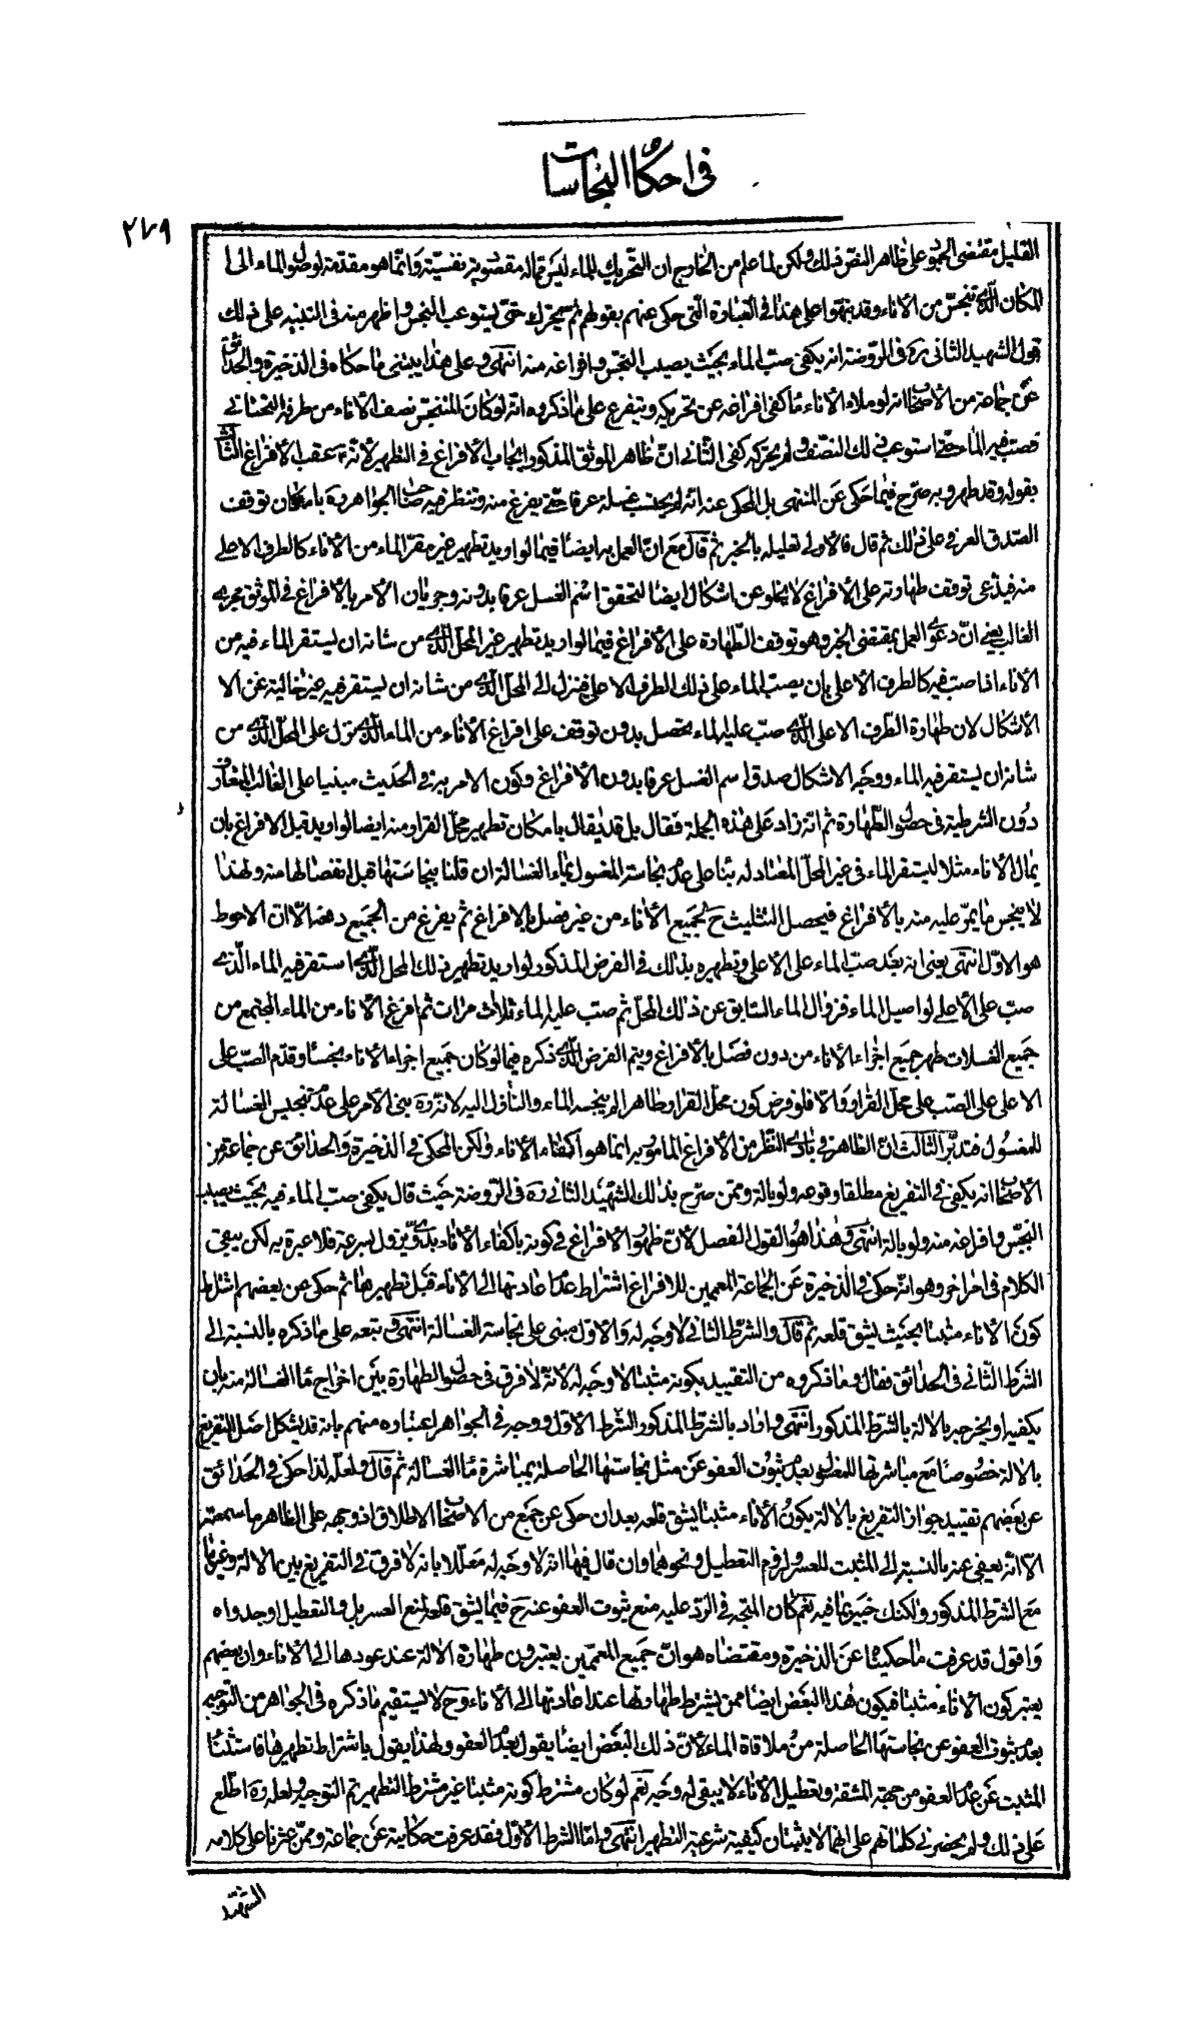 في احكام النجاسات
٢٧٩
القليل مقتضى الجمود على ظاهر النص ذلك ولكن لما علم من الخارج ان التحريك للماء ليس مما له مقصودية نفسية وانما هو مقدمة لوصول الماء الى
المكان الذي تنجس من الاناء وقد نبهوا على هذا في العبارة التي حكى عنهم بقولهم ثم يحركه حتى يستوعب النجس واظهر منه في التنبيه على ذلك
قول الشهيد الثاني ره في الروضة انه يكفي صب الماء بحيث يصيب النجس وافراغه منه انتهى وعلى هذا يبتني ما حكاه في الذخيرة والحدائق
عن جماعة من الاصحاب انه لو ملاء الاناء ماء كفى افراغه عن تحريكه ويتفرع على ما ذكروه انه لو كان المتنجس نصف الاناء من طرفه التحتاني
فصب فيه الماء حتى استوعب ذلك النصف ولم يحركه كفى الثاني ان ظاهر الموثق المذكور ايجاب الافراغ في التطهير لانه ع عقب الافراغ الثالث
بقوله وقد طهر وبه صرح فيما حكى عن المنتهى بل المحكي عنه انه لم يحتسب غسله عرفا حتى يفرغ منه وتنظر فيه صاحب الجواهر ره بامكان توقف
الصدق العرفي على ذلك ثم قال فالاولى تعليله بالخبر ثم قال مع ان العمل به ايضا فيما لو اريد تطهير غير مقر الماء من الاناء كالطرف الاعلى
منه فيدعى توقف طهارته على الافراغ لا يخلو عن اشكال ايضا لتحقق اسم الغسل عرفا بدونه وجريان الامر بالافراغ في الموثق مجرى
الغالب يعني ان دعوى العمل بمقتضى الخبر وهو توقف الطهارة على الافراغ فيما لو اريد تطهير غير المحل الذي من شانه ان يستقر الماء فيه من
الاناء اذا صب فيه كالطرف الاعلى بان يصب الماء على ذلك الطرف الاعلى فينزل الى المحل الذي من شانه ان يستقر فيه غير خالية عن الا
الاشكال لان طهارة الطرف الاعلى الذي صب عليه الماء يحصل بدون توقف على افراغ الاناء من الماء الذي نزل على المحل الذي من
شانه ان يستقر فيه الماء ووجه الاشكال صدق اسم الغسل عرفا بدون الافراغ وكون الامر به في الحديث مبنيا على الغالب المتعارف
دون الشرطية في حصول الطهارة ثم انه زاد على هذه الجملة فقال بل قد يقال بامكان تطهير محل القرار منه ايضا لو اريد قبل الافراغ بان
يمال الاناء مثلا ليستقر الماء في غير المحل المعتاد له بناء على عدم نجاسة المغسول بماء الغسالة ان قلنا بنجاستها قبل انفصالها منه ولهذا
لا ينجس ما يمر عليه منه بالافراغ فيحصل التثليث ح لجميع الاناء من غير فصل بالافراغ ثم يفرغ من الجميع دفعة الا ان الاحوط
هو الاول انتهى يعني انه بعد صب الماء على الاعلى وتطهيره بذلك في الفرض المذكور لو اريد تطهير ذلك المحل الذي استقر فيه الماء الذي
صب على الاعلى لو اميل الماء فزوال الماء السابق عن ذلك المحل ثم صب عليه الماء ثلاث مرات ثم افرغ الاناء من الماء المجتمع من
جميع الغسلات طهر جميع اجزاء الاناء من دون فصل بالافراغ ويتم الفرض الذي ذكره فيما لو كان جميع اجزاء الاناء نجسا وقدم الصب على
الاعلى على الصب على محل القرار والا فلو فرض كون محل القرار طاهرا لم ينجسه الماء والنازل اليه لانه ره بنى الامر على عدم تنجيس الغسالة
للمغسول فتدبر الثالث ان الظاهر في بادي النظر من الافراغ المامور به انما هو اكفاء الاناء ولكن المحكي في الذخيرة والحدائق عن جماعة من
الاصحاب انه يكفي في التفريغ مطلقا وقوعه ولو بالة وممن صرح بذلك الشهيد الثاني ره في الروضة حيث قال يكفي صب الماء فيه بحيث يصيب
النجس وافراغه منه ولو بالة انتهى وهذا هو القول الفصل لان ظهور الافراغ في كونه باكفاء الاناء بدوي يزول بسرعة فلا عبرة به لكن يبقى
الكلام في امر اخر وهو انه حكى في الذخيرة عن الجماعة المعممين للافراغ اشتراط عدم اعادتها الى الاناء قبل تطهيرها ثم حكى عن بعضهم اشتراط
كون الاناء مثبتا بحيث يشق قلعه ثم قال والشرط الثاني لا وجه له والاول مبني على نجاسة الغسالة انتهى وتبعه على ما ذكره بالنسبة الى
الشرط الثاني في الحدائق فقال وما ذكروه من التقييد بكونه مثبتا لا وجه له لانه لا فرق في حصول الطهارة بين اخراج ماء الغسالة منه بان
يكفيه او يخرجه بالالة بالشرط المذكور انتهى واراد بالشرط المذكور الشرط الاول ووجه في الجواهر اعتباره منهم بانه قد يشكل اصل التفريغ
بالالة خصوصا مع مباشرتها للمغسول بعدم ثبوت العفو عن مثل نجاستها الحاصلة بمباشرة ماء الغسالة ثم قال ولعله لذا حكى في الحدائق
عن بعضهم تقييد جواز التفريغ بالالة بكون الاناء مثبتا يشق قلعه بعد ان حكى عن جمع من الاصحاب الاطلاق اذ وجهه على الظاهر ما سمعته
الا انه يعفى عنه بالنسبة الى المثبت للعسر ولزوم التعطيل ونحوهما وان قال فيها انه لا وجه له معللا بانه لا فرق في التفريغ بين الالة وغيرها
مع الشرط المذكور ولكنك خبير بما فيه نعم كان المتجه في الرد عليه منع ثبوت العفو عنه ح فيما يشق قلعه لمنع العسر بل والتعطيل اوجدواه
واقول قد عرفت ما حكيناه عن الذخيرة ومقتضاه هو ان جميع المعممين يعتبرون طهارة الالة عند عودها الى الاناء وان بعضهم
يعتبر كون الاناء مثبتا فيكون هذا البعض ايضا ممن يشترط طهارتها عند اعادتها الى الاناء وح لا يستقيم ما ذكره في الجواهر من التوجيه
بعدم ثبوت العفو عن نجاستها الحاصلة من ملاقاة الماء لان ذلك البعض ايضا يقول بعدم العفو ولهذا يقول باشتراط تطهيرها فاستثناء
المثبت عن عدم العفو من جهة المشقة وتعطيل الاناء لا يبقى له وجه نعم لو كان مشترط كونه مثبتا غير مشترط التطهير تم التوجيه ولعله ره اطلع
على ذلك ولم يحضرني كلماتهم على انهما لا يثبتان كيفية شرعية التطهير انتهى واما الشرط الاول فقد عرفت حكايته عن جماعة وممن عثرنا على كلامه
الشهيد